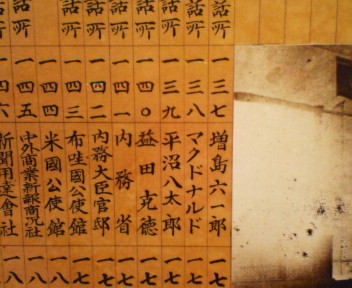 話所一
話所一
話所一
話所一
一三七 増島六一郎 一七
一三八 マクドナルド 一七
一三九 平沼八太郎 一七
一四〇 益田克徳 一七
一四一 内務省 一七
一四二 内務大臣官邸 一七
一四三 布哇國公使館 一七
一四四 米國公使館 一八
一四五 中外商業新報商況社 一八
一四六 新聞用達會社 一八